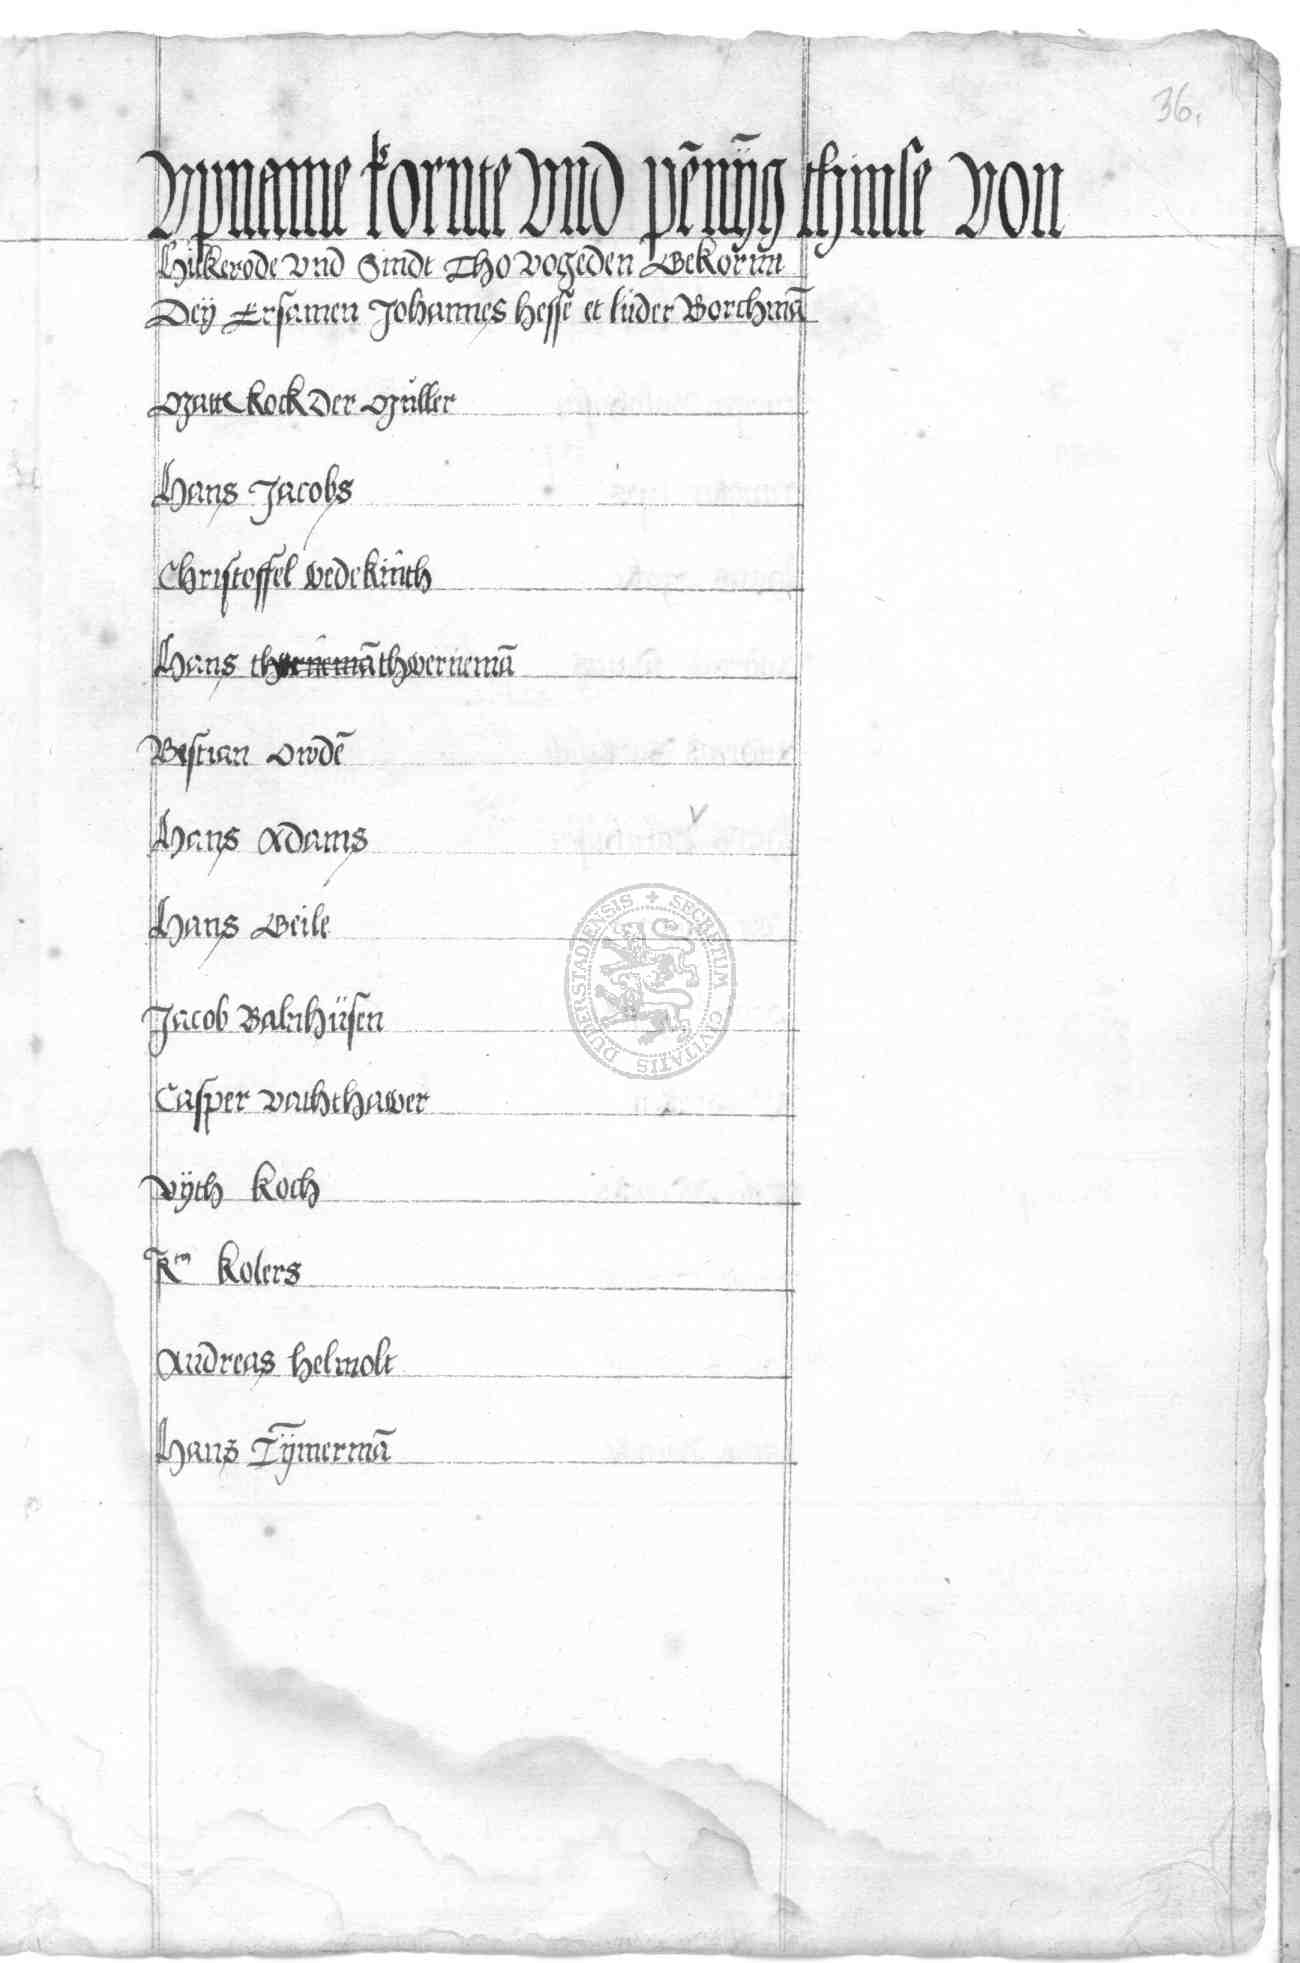 36.
Upname kornte vnd pēnÿg thinse von
Hilkerode vnd Sindt Tho vogeden Gekornn
Deÿ Ersamen Johannes Hesse et lüder Borchmā
Matt Kock der Müller
Hans Jacobs
Christoffel wedekinth
Hans thwernemā thwernemā
Bastian Owdē
Hans Adams
Hans Geile
Jacob Balnhüsen
Casper vaththawer
Vÿth Koch
Kolers
Andreas helmolt
Hans Tÿmermā
SECRETUM CIVITATIS DUDERSTADIENSIS